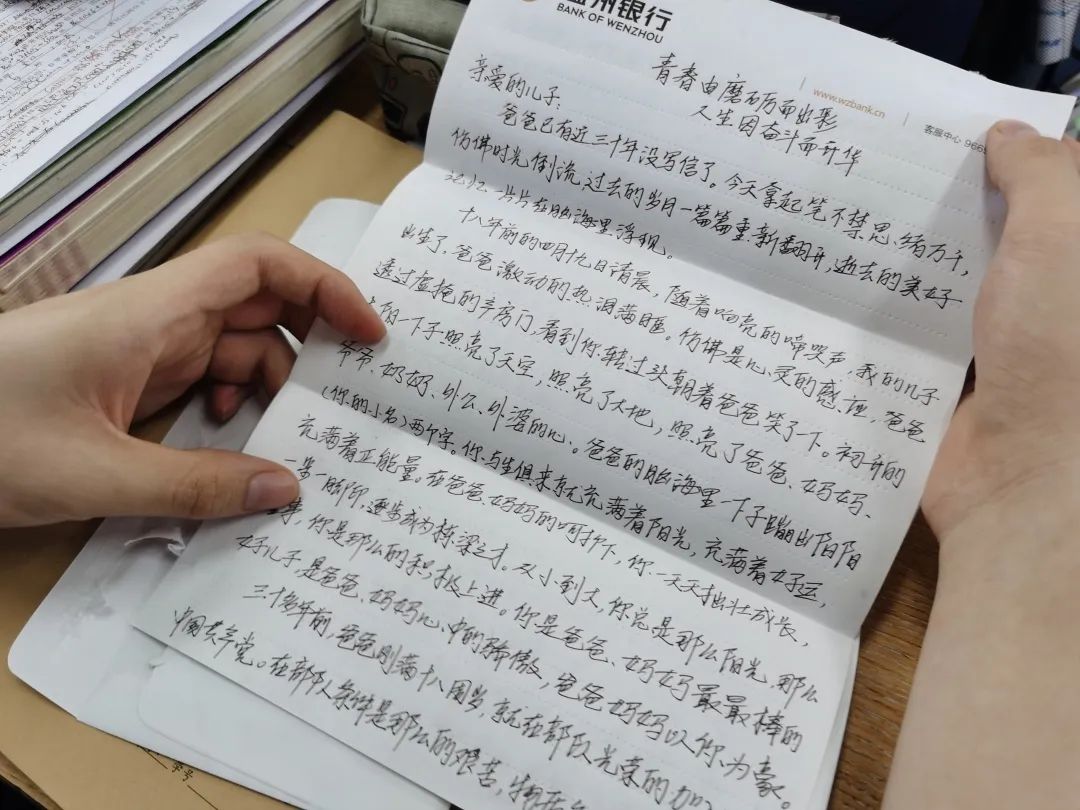 温州银行
BANK OF WENZHOU
www.wzbank.cn
客服中心 966
青春由磨砺而出彩
人生因奋斗而升华
亲爱的儿子:
爸爸已有近三十年没写信了。今天拿起笔不禁思绪万千,
仿佛时光倒流,过去的岁月一篇篇重新翻开,逝去的美好
记忆一片片在脑海里浮现。
十八年前的四月十九日清晨,随着响亮的啼哭声,我的儿子
出生了,爸爸激动的热泪满眶。仿佛是心灵的感应,爸爸
透过虚掩的产房门,看到你转过头朝着爸爸笑了一下。初升的
一下子照亮了天空,照亮了大地,照亮了爸爸、妈妈、
爷爷、奶奶、外公、外婆的心。爸爸的脑海里一下子蹦出阳阳
(你的小名)两个字。你与生俱来就充满着阳光,充满着好运,
充满着正能量。在爸爸、妈妈的呵护下,你一天天茁壮成长,
一步一脚印,逐步成为栋梁之才。从小到大,你总是那么阳光,那么
你是那么的积极上进。你是爸爸、妈妈最最棒的
好儿子,是爸爸、妈妈心中的骄傲,爸爸妈妈以你为豪。
三十多年前,爸爸刚满十八周岁,就在部队光荣的加
中国共产党。在部队条件是那么的艰苦,物
学号